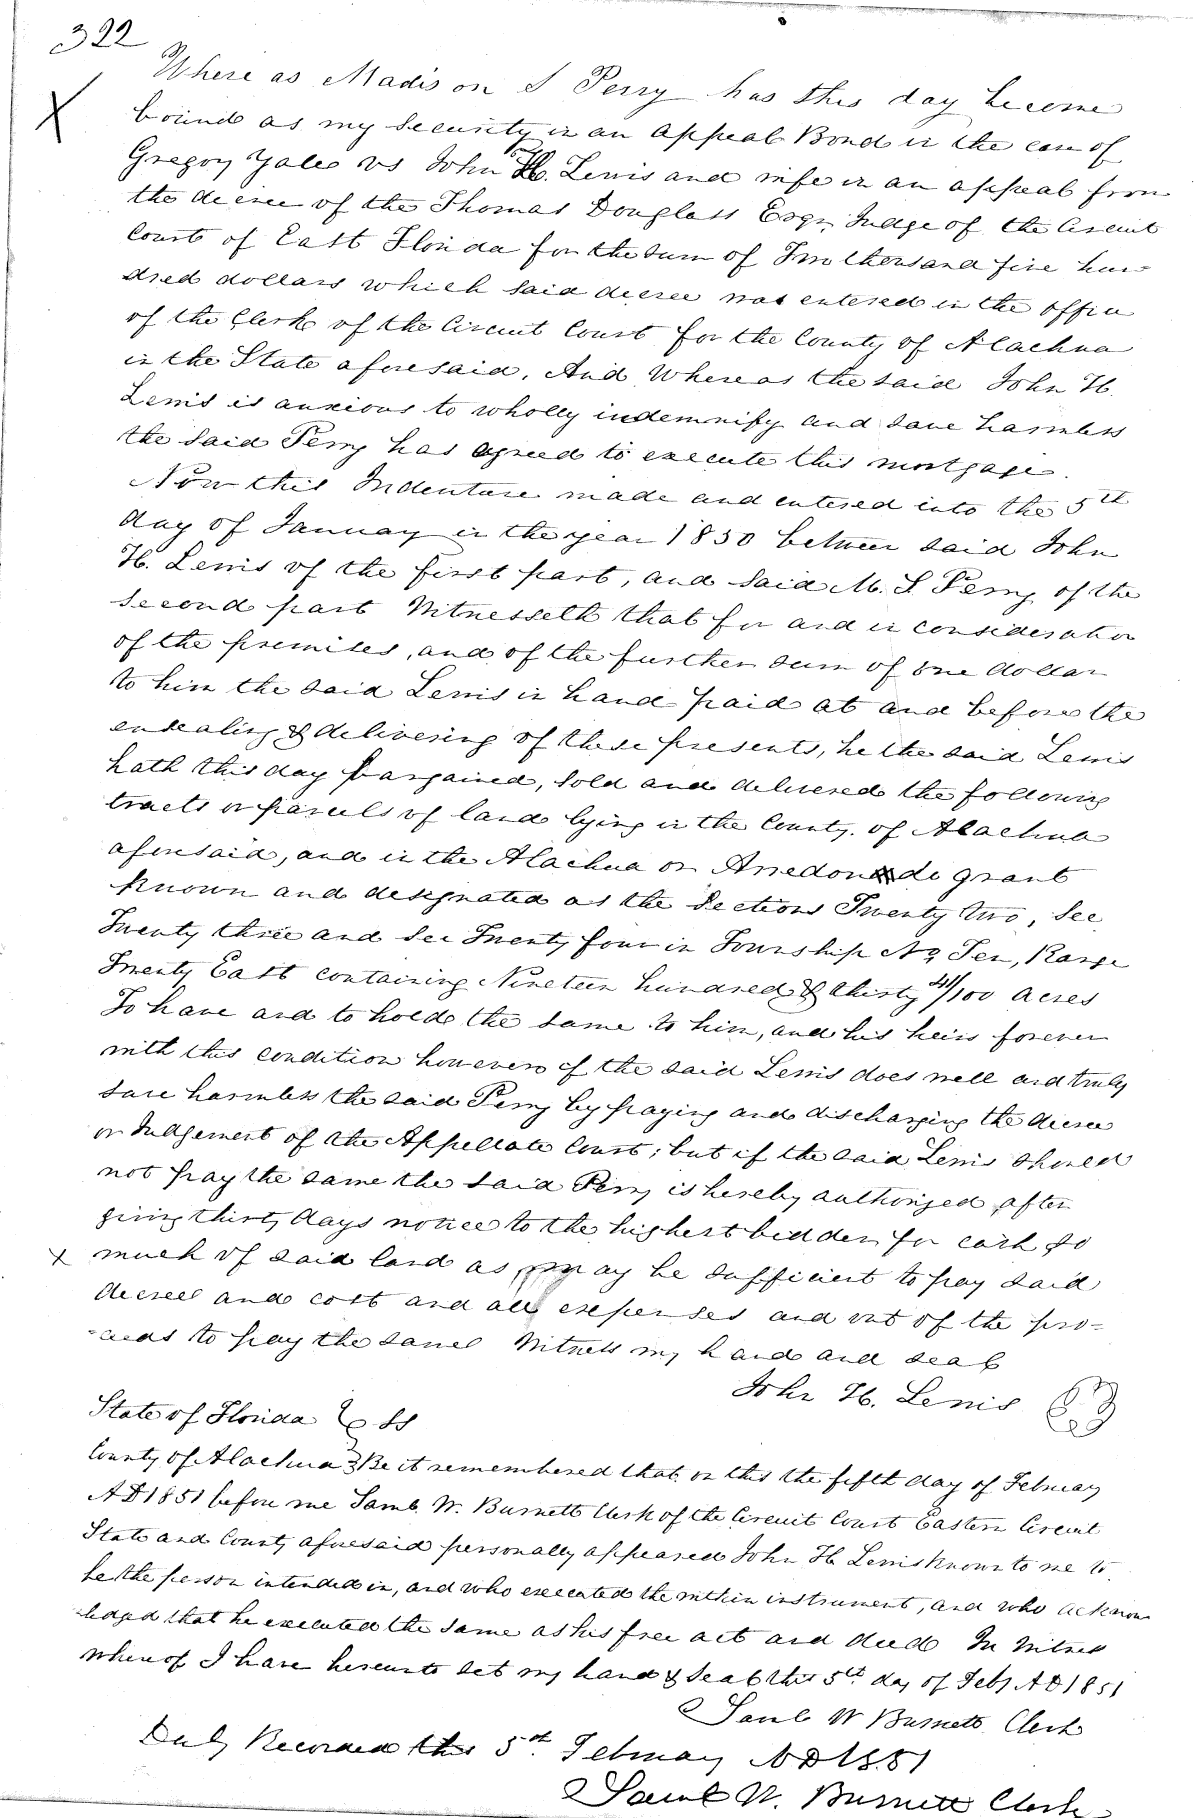 322
Where as Madison S Perry has this day become
X bound as my Security in an appeal Bond in the case of
Gregory Yale vs John H. Lewis and wife in an appeal from
the decree of the Thomas Douglass Esqr. Judge of the Circuit
Court of East Florida for the sum of Two thousand five hun-
dred dollars which said decree was entered in the office
of the Clerk of the Circuit Court for the County of Alachua
in the State aforesaid, And Whereas the said John H.
Lewis is anxious to wholly indemnify and save harmless
the said Perry has agreed to execute this mortgage.
Now this Indenture made and entered into the 5th
day of January in the year 1850 between said John
H. Lewis of the first part, and said M. S. Perry of the
second part Witnesseth that for and in consideration
of the premises, and of the further sum of one dollar
to him the said Lewis in hand paid at and before the
ensealing & delivering of these presents, he the said Lewis
hath this day bargained, sold and delivered the following
tracts or parcels of land lying in the County of Alachua
aforesaid, and in the Alachua or Arredondo grant
known and designated as the Sections Twenty two, Sec
Twenty three and Sec Twenty four in Township No Ten, Range
Twenty East containing Nineteen hundred & thirty 41/100 acres
To have and to hold the same to him, and his heirs forever
with this condition however if the said Lewis does well and truly
save harmless the said Perry by paying and discharging the decree
or Judgement of the Appellate Court; but if the said Lewis should
not pay the same the said Perry is hereby authorized, after
giving thirty days notice to the highest bidder for cash so
x much of said land as may be sufficient to pay said
decree and cost and all expenses and out of the pro-
-ceeds to pay the same Witness my hand and seal
John H. Lewis
State of Florida } SS
County of Alachua } Be it remembered that on this the fifth day of February
AD 1851 before me Saml. W. Burnett Clerk of the Circuit Court Eastern Circuit
State and County aforesaid personally appeared John H. Lewis known to me to
be the person intended in, and who executed the within instrument, and who acknow
-ledged that he executed the same as his free act and deed In Witness
whereof I have hereunto set my hand & seal this 5th day of Feby AD 1851
Saml W Burnett Clerk
Duly Recorded this 5th February AD 1851
Saml W. Burnett Clerk